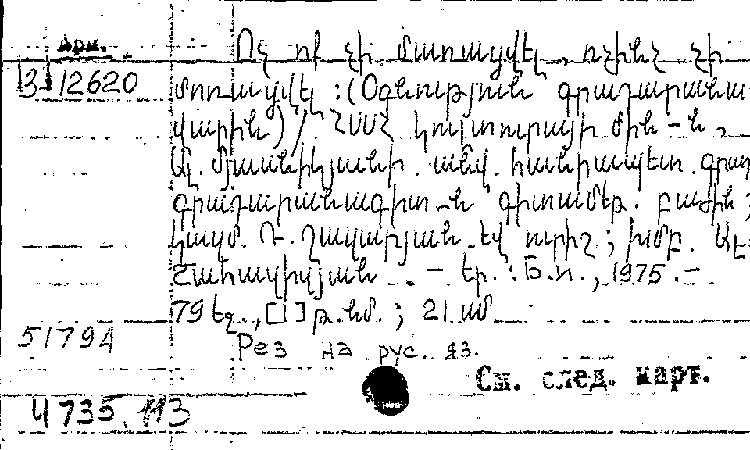 Арм.
Ոչ ոք չի մոռացվել, ոչինչ չի
3-12620
մոռացվել : (Օգնություն գրադարանա
վարին) / ՀՍՍՀ Կուլտուրայի մին-ն,
Ալ. Մյասնիկյանի անվ. հանրապետ. գրադ
գրադարանագիտ-ն գիտամեթ. բաժին;
կազմ. Դ. Ղազարյան եվ ուրիշ ; խմբ. Ալ
– Եր. : Б.и., 1975. –
79 էջ., [1] թ. նմ. ; 21 սմ
51794
Рез на рус. яз.
См. след. карт.
Ч 735.113